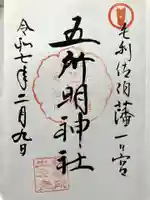 毛利佐伯藩一の宮
五所明神社
令和七年二月九日